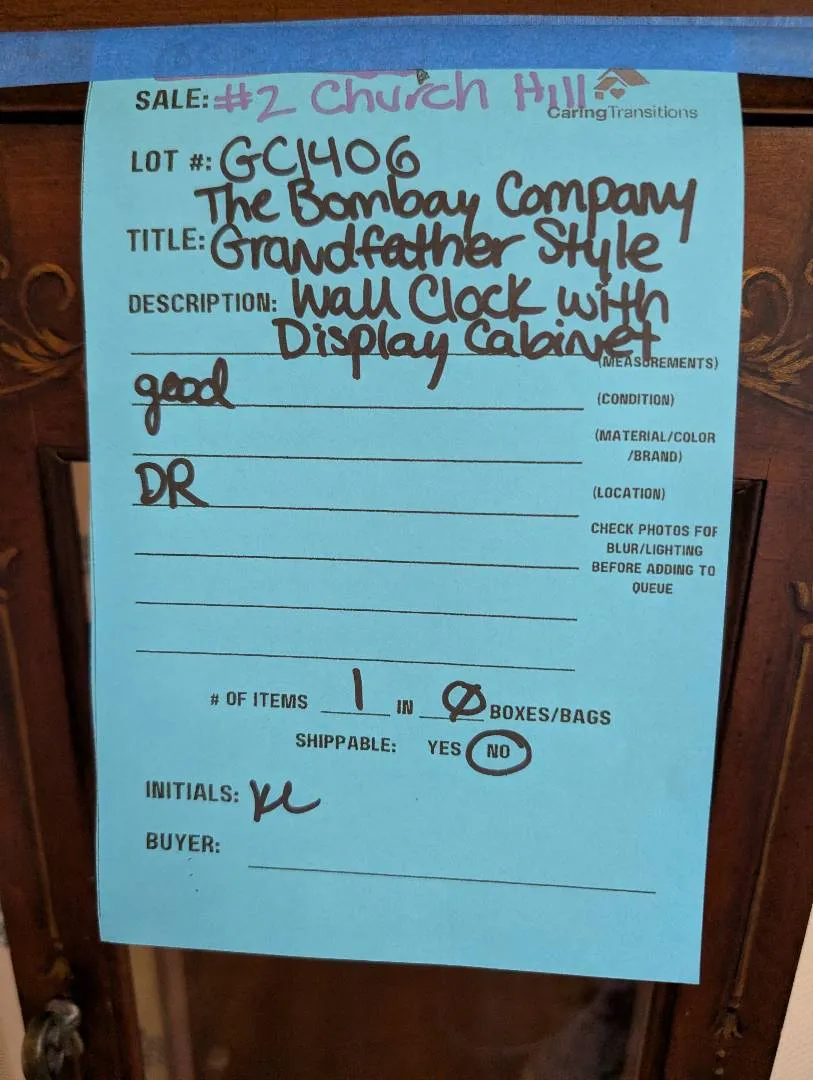 SALE: #2 Church Hill
CaringTransitions
LOT #: GC1406
The Bombay Company
TITLE: Grandfather Style
DESCRIPTION: Wall Clock with
Display Cabinet
(MEASUREMENTS)
good (CONDITION)
(MATERIAL/COLOR
/BRAND)
DR (LOCATION)
CHECK PHOTOS FOR
BLUR/LIGHTING
BEFORE ADDING TO
QUEUE
# OF ITEMS 1 IN Ø BOXES/BAGS
SHIPPABLE: YES NO
INITIALS: KL
BUYER: